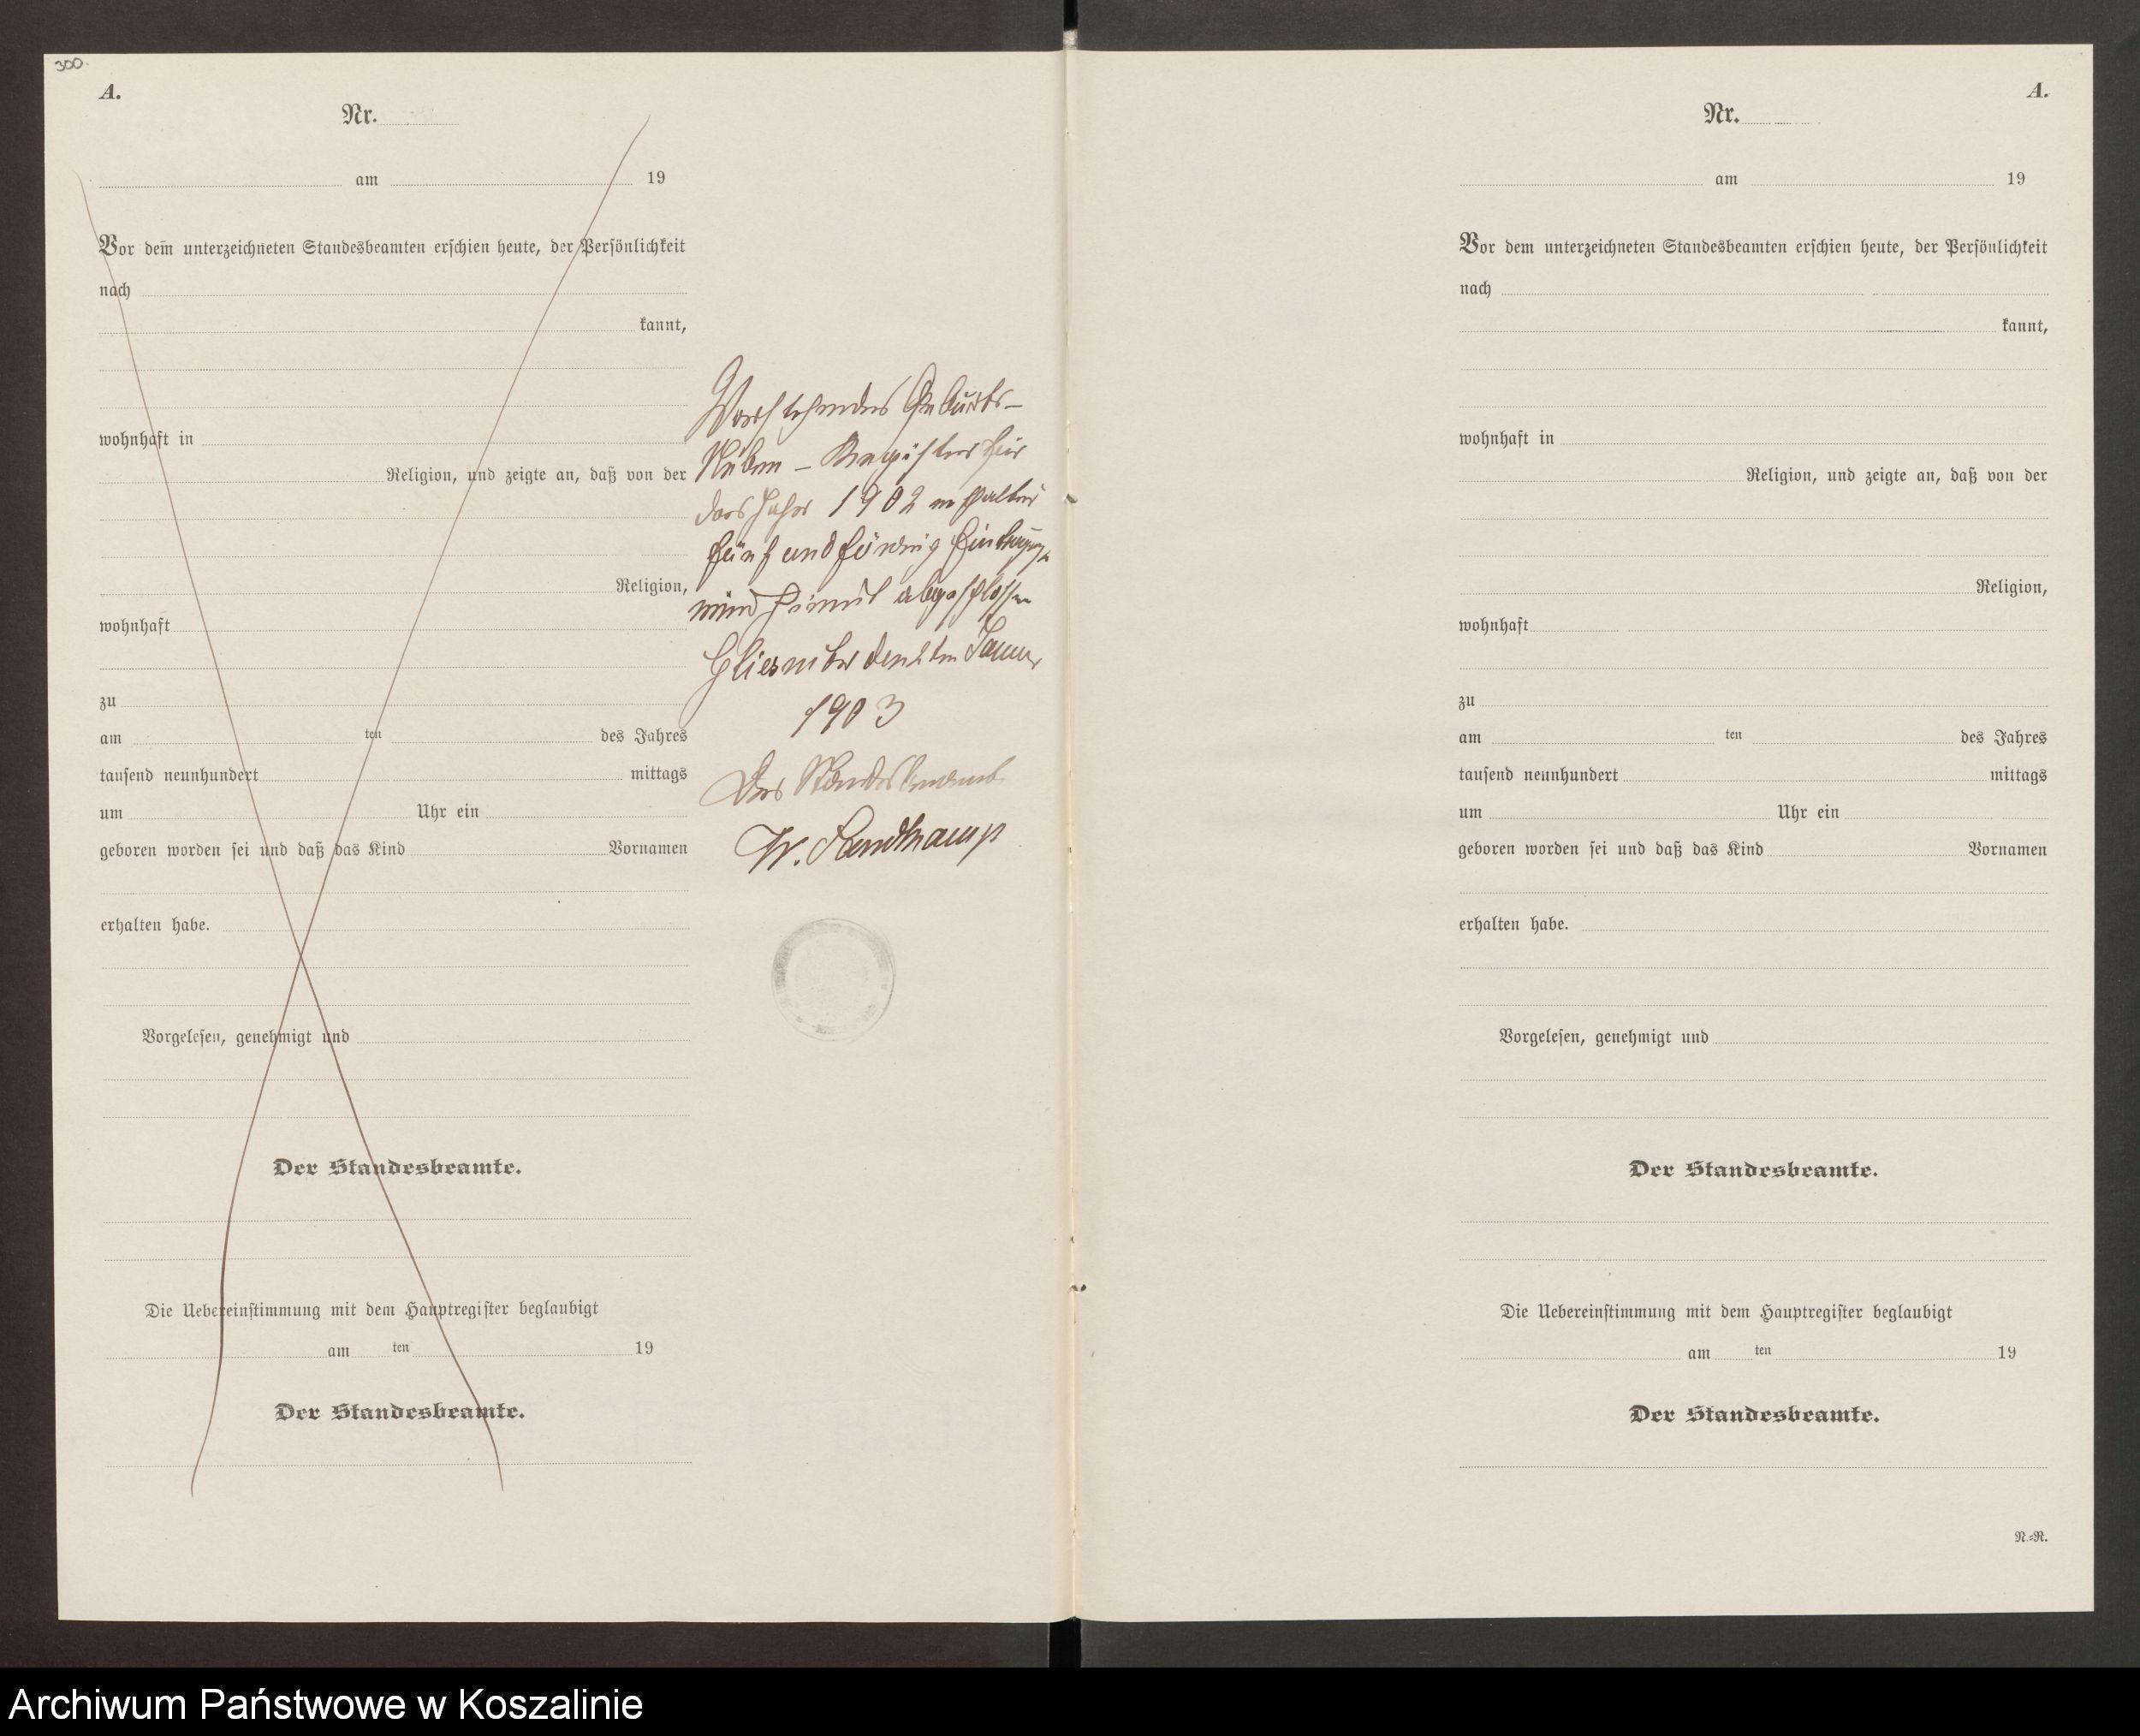 300.
A.
Nr.
am 19
Vor dem unterzeichneten Standesbeamten erschien heute, der Persönlichkeit
nach
kannt,
wohnhaft in
Religion, und zeigte an, daß von der
Religion,
wohnhaft
zu
am ten des Jahres
tausend neunhundert mittags
um Uhr ein
geboren worden sei und daß das Kind Vornamen
erhalten habe.
Vorgelesen, genehmigt und
Der Standesbeamte.
Die Uebereinstimmung mit dem Hauptregister beglaubigt
am ten 19
Der Standesbeamte.
Vorstehendes Geburts-
Neben-Register für
das Jahr 1902 enthaltend
fünf und Eintragungen
wird hiermit abgeschlossen
den Januar
1903
Der Standesbeamte
W. Sandkamp
A.
Nr.
am 19
Vor dem unterzeichneten Standesbeamten erschien heute, der Persönlichkeit
nach
kannt,
wohnhaft in
Religion, und zeigte an, daß von der
Religion,
wohnhaft
zu
am ten des Jahres
tausend neunhundert mittags
um Uhr ein
geboren worden sei und daß das Kind Vornamen
erhalten habe.
Vorgelesen, genehmigt und
Der Standesbeamte.
Die Uebereinstimmung mit dem Hauptregister beglaubigt
am ten 19
Der Standesbeamte.
N.=R.
Archiwum Państwowe w Koszalinie